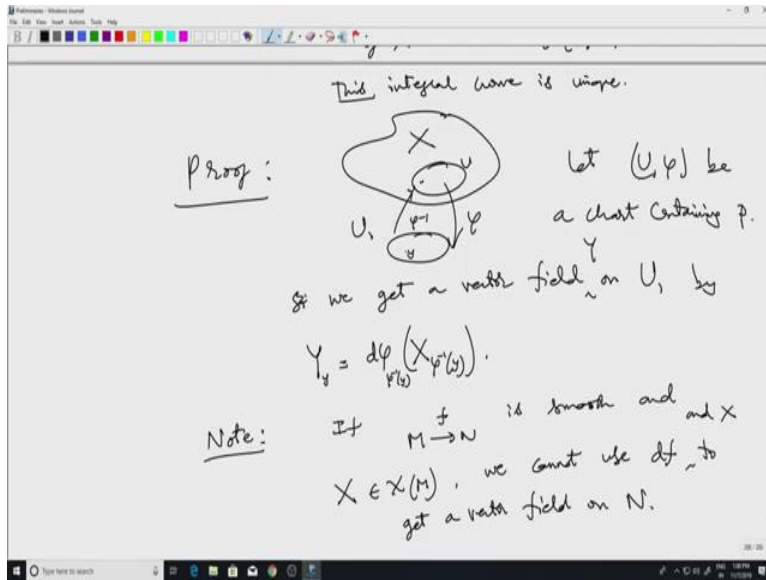 Preliminaries - Windows Journal
File Edit View Insert Actions Tools Help
This integral curve is unique.
Proof:
X
U
Let (U, φ) be
a chart containing p.
U₁ φ⁻¹ φ
y
we get a vector field Y on U₁ by
Y_y = dφ_{φ⁻¹(y)} (X_{φ⁻¹(y)}).
Note: If M →f N is smooth and
X ∈ X(M), we cannot use df and X to
get a vector field on N.
Type here to search